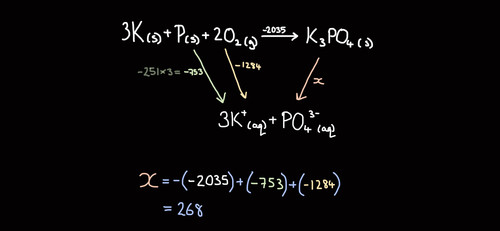 3K(s) + P(s) + 2O₂(g) → K₃PO₄(s)
-2035
-251×3 = -753
-1284
x
3K⁺(aq) + PO₄³⁻(aq)
x = -(-2035)+(-753)+(-1284)
= 268